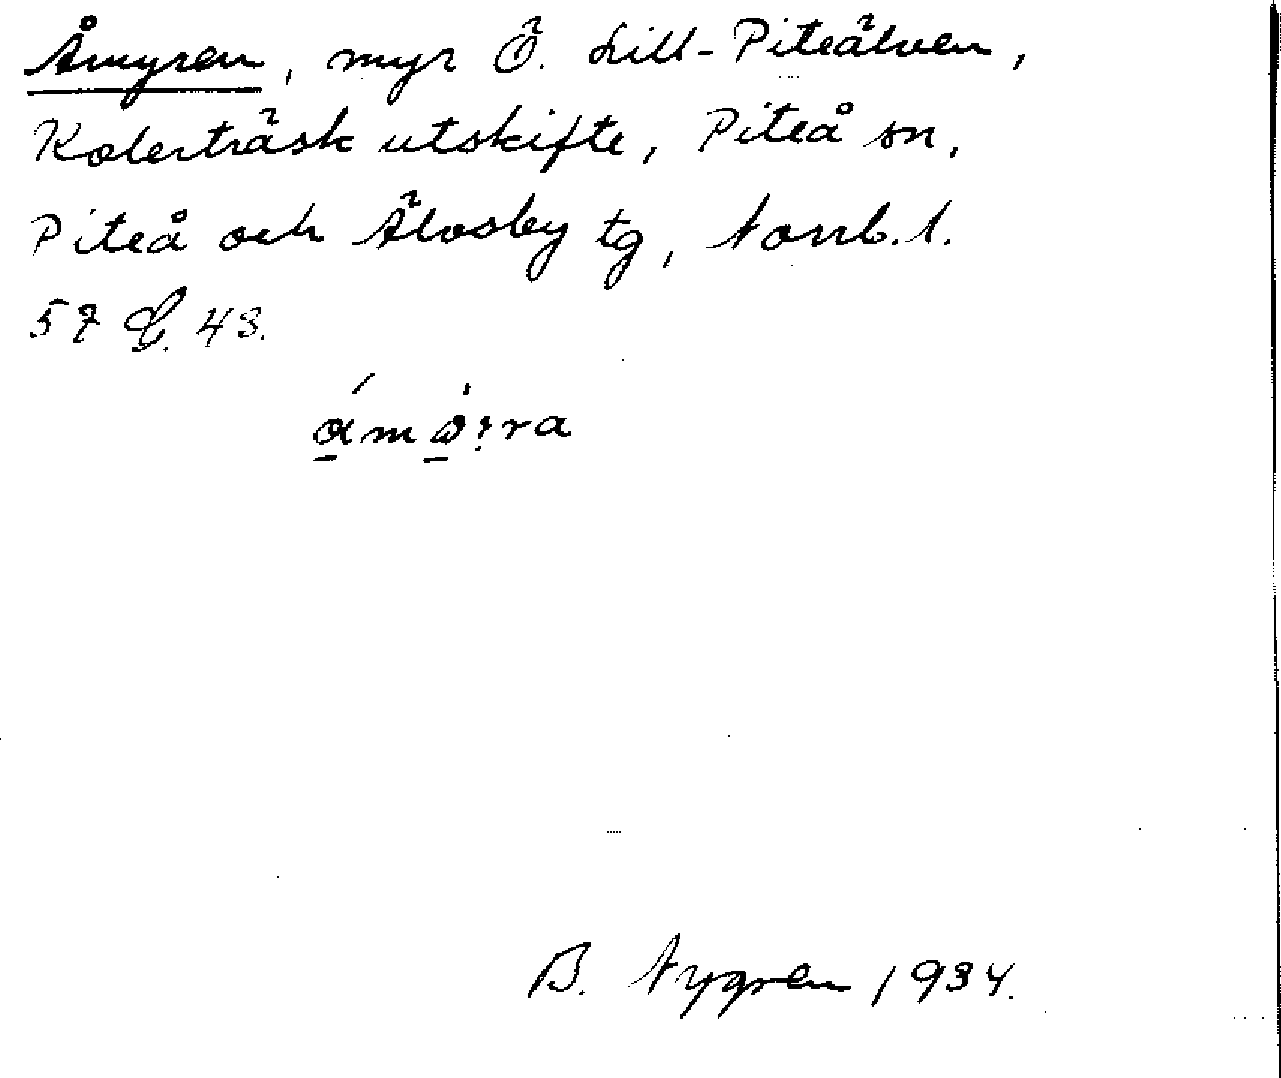 Åmyren, myr Ö. Lill-Piteälven,
Kolerträsk utskifte, Piteå sn,
Piteå och Älvsby tg, Norrb. l.
57 C. 43.
B. Nygren 1934.